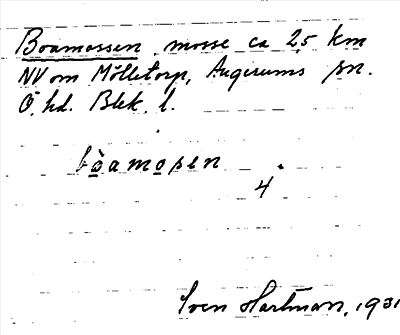 Boamossen, mosse ca 2,5 km
NV om Mölletorp, Augerums sn.
Ö. hd. Blek. l.
bòamosen
4.
Sven Hartman, 1931